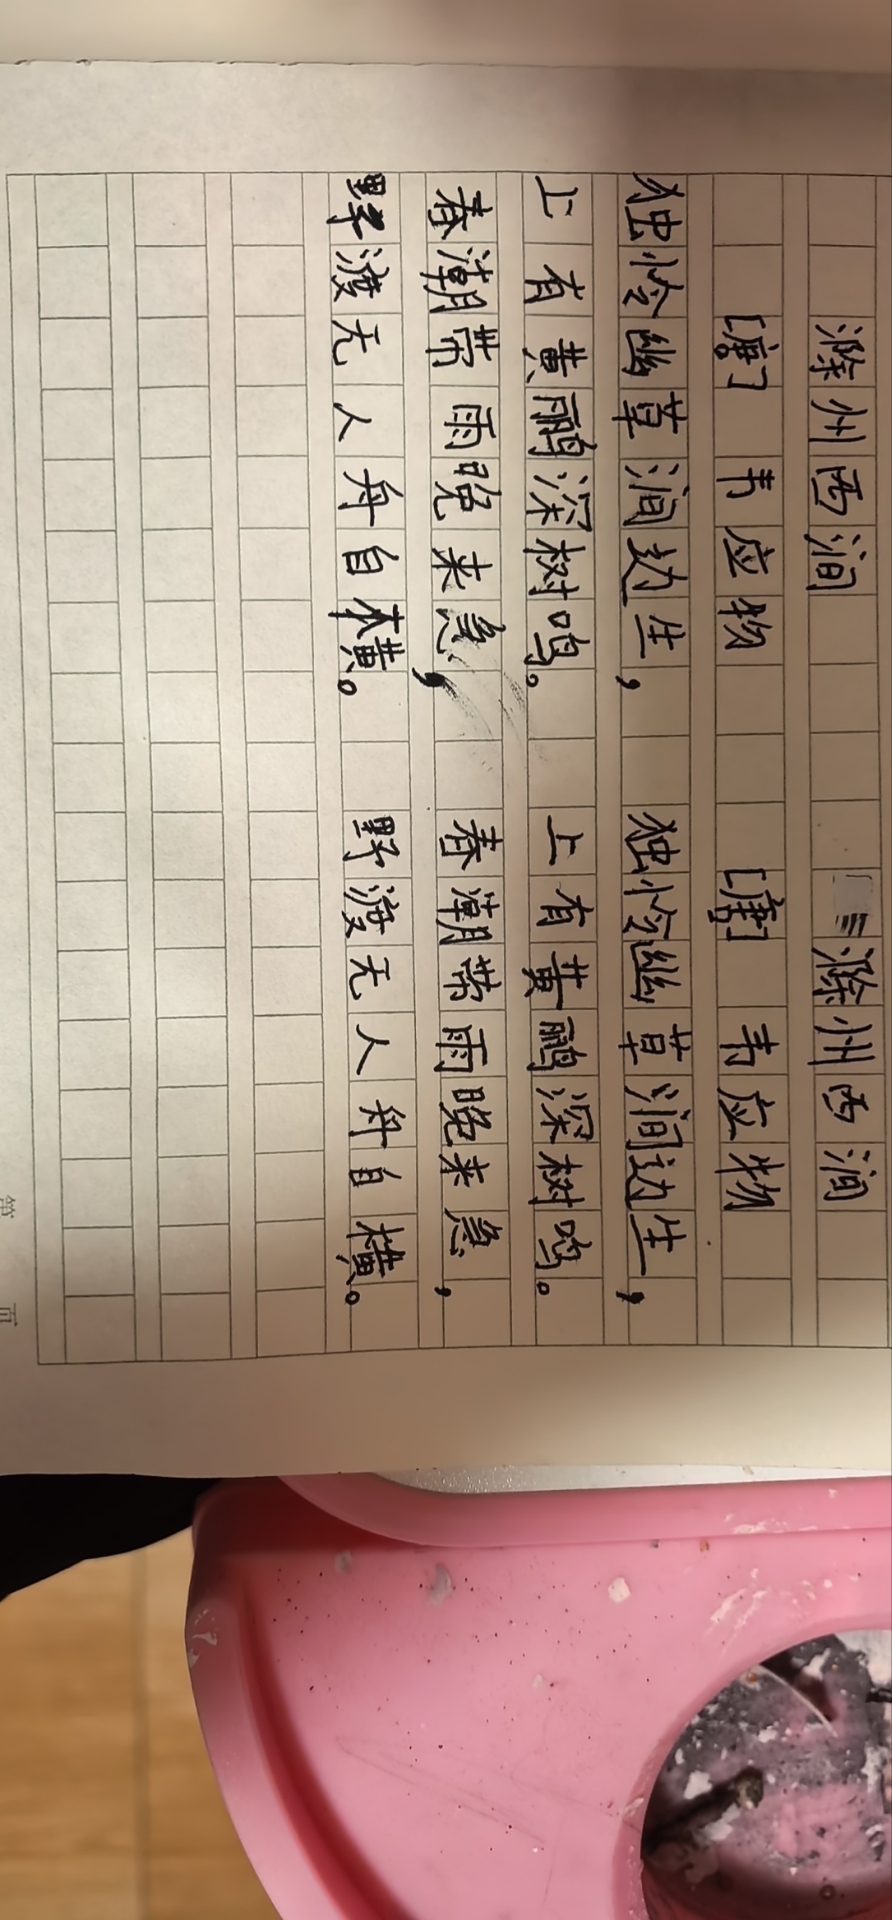 滁州西涧 滁州西涧
[唐] 韦应物 [唐] 韦应物
独怜幽草涧边生， 独怜幽草涧边生，
上有黄鹂深树鸣。 上有黄鹂深树鸣。
春潮带雨晚来急， 春潮带雨晚来急，
野渡无人舟自横。 野渡无人舟自横。
第 页